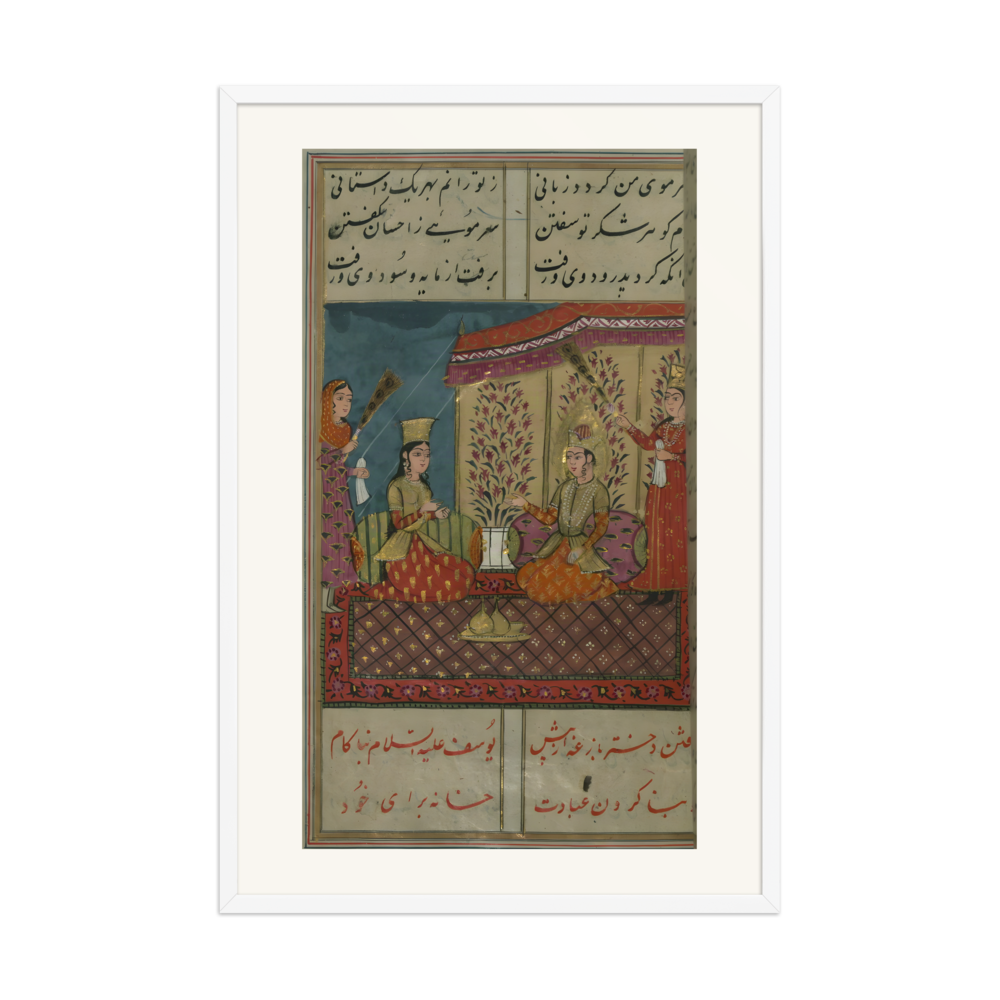 رموی من کردد زبانی ز تو رانم بهریک داستانی
م کوهر شکر تو سفتن سر مویی ز احسان کفتن
انکه کرد پدرود وی ورفت برفت از مایه و سود وی ورفت
دختر بازغه یوسف علیه السلام
بنا کردن عبادت خانه برای خود